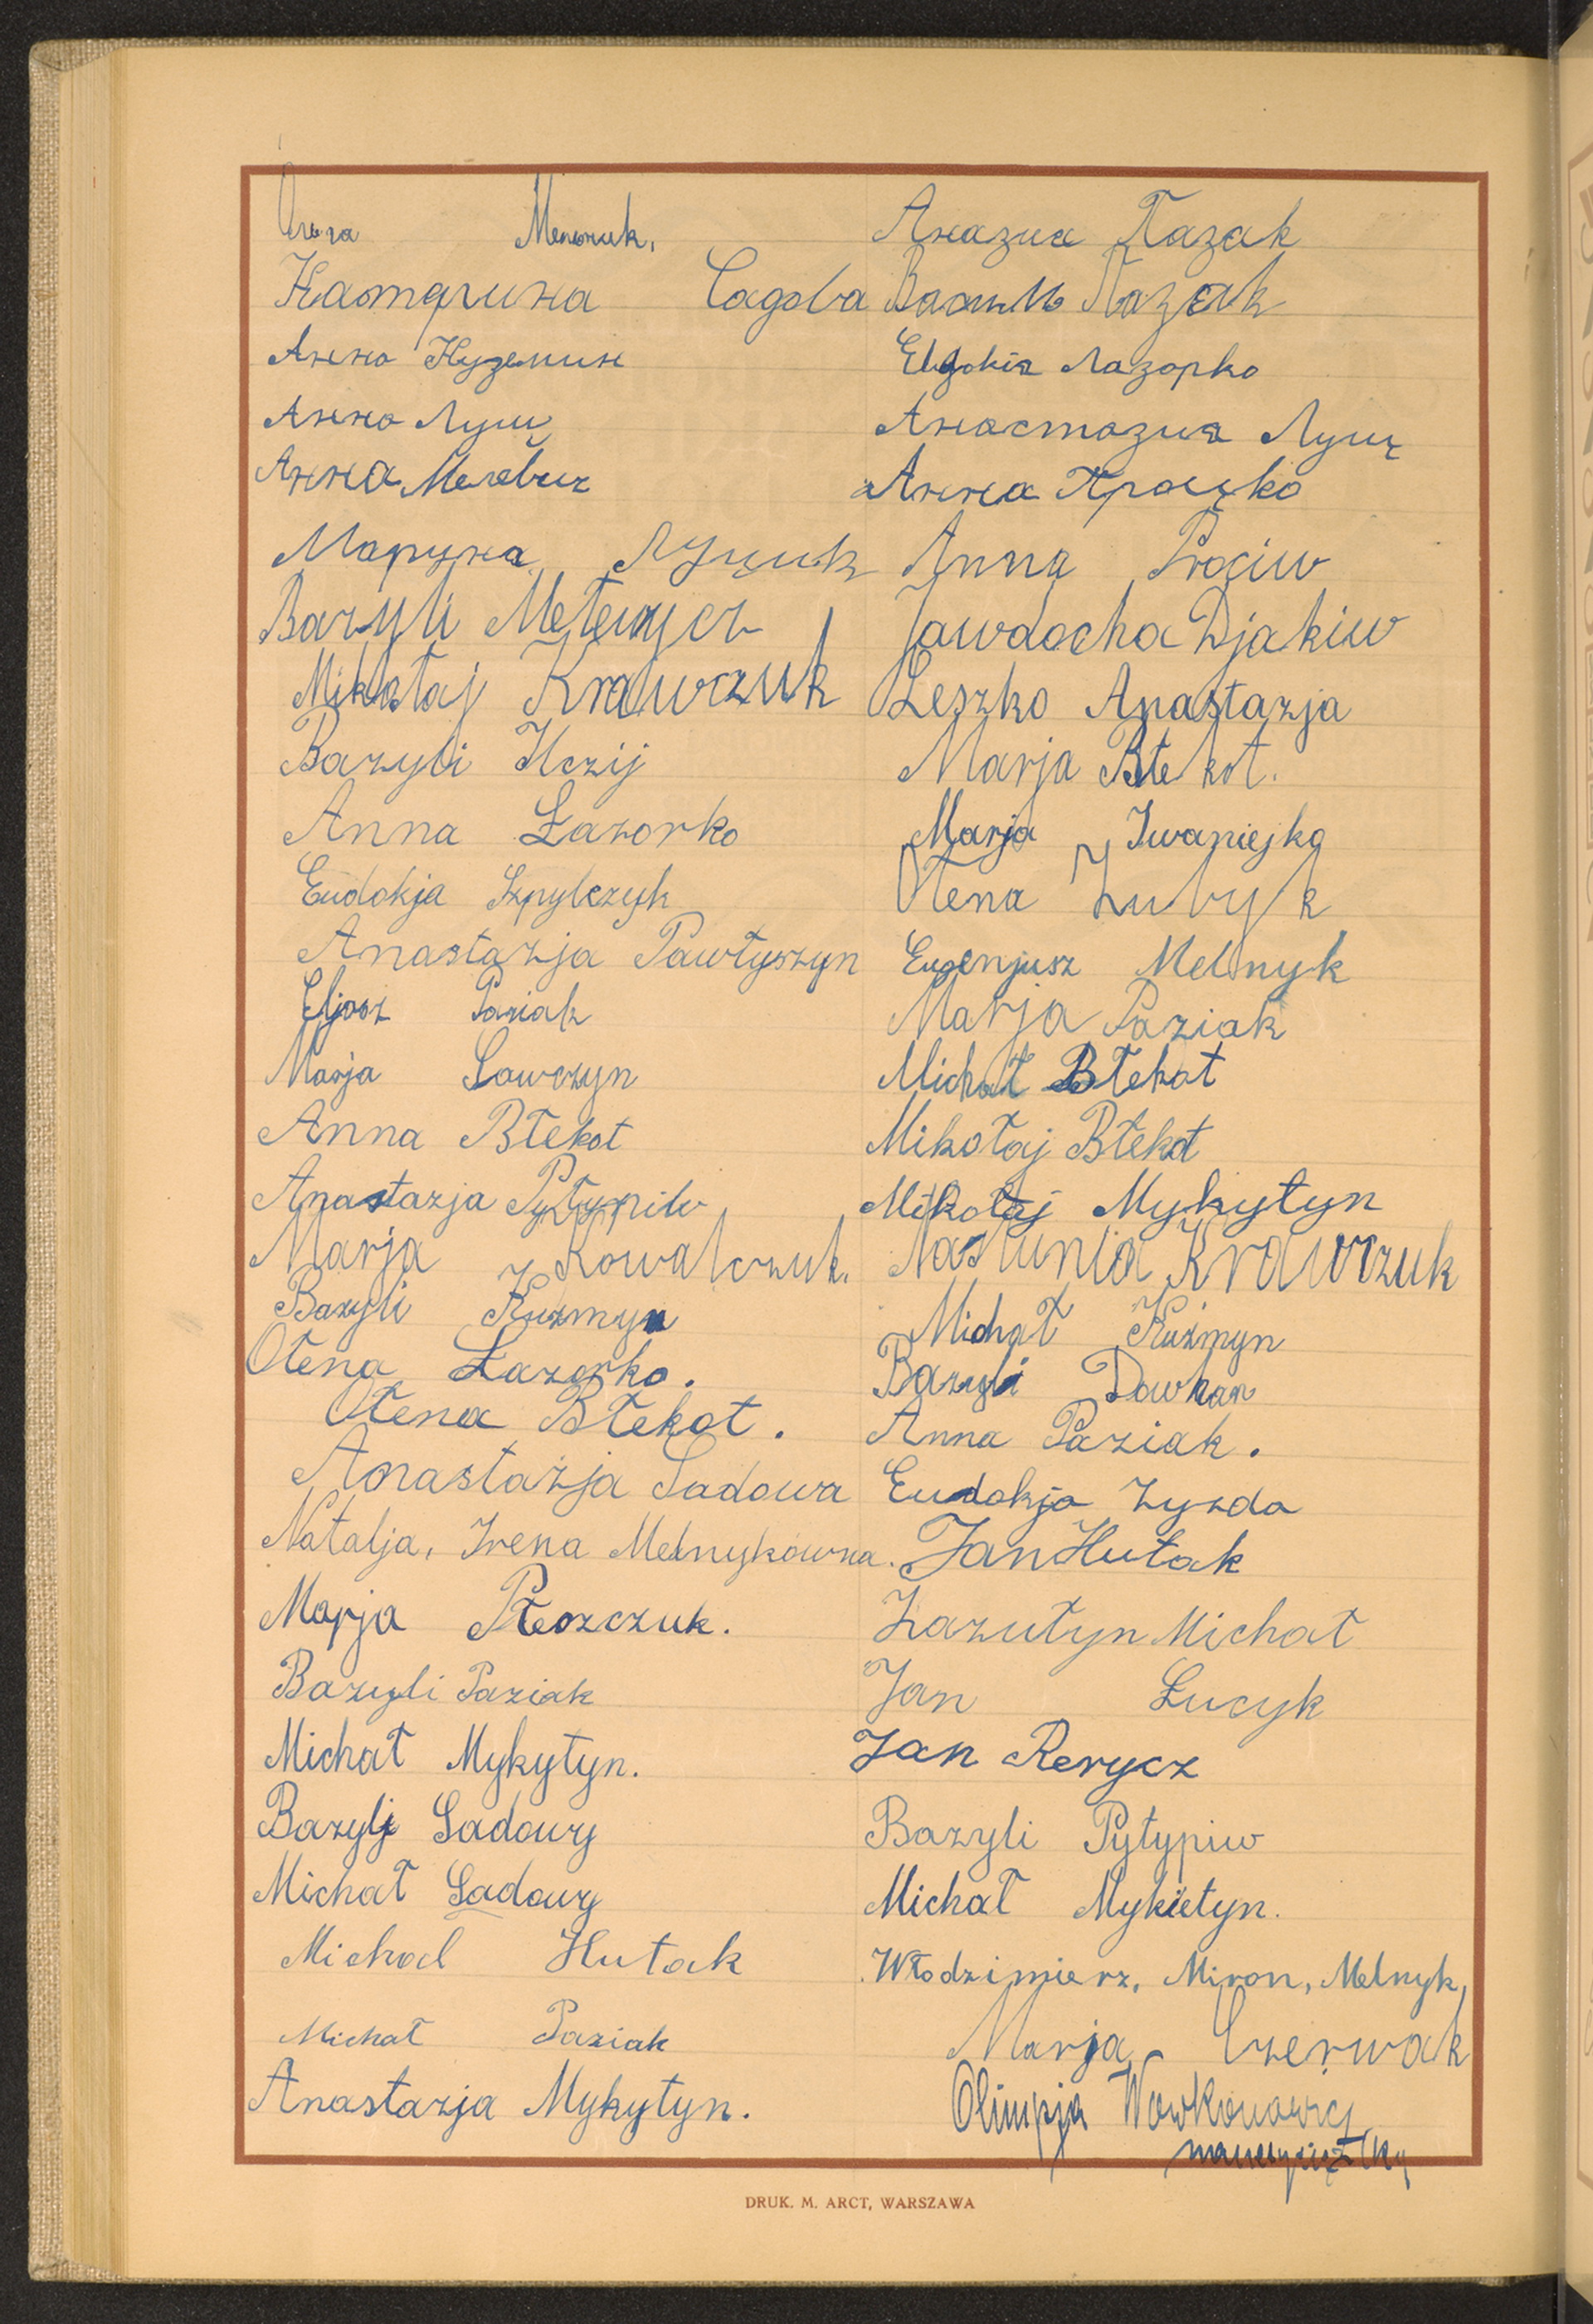 Анна Мельник.
Катарина Садова
Анна Кузьмин
Анна Луцц
Анна Мелевич
Марина Луцик
Bazyli Melewycz
Mikołaj Krawczuk
Bazyli Ilczij
Anna Łazorko
Eudokja Szpylczyk
Anastazja Pawłyszyn
Eljasz Paziak
Marja Sawczyn
Anna Błekot
Anastazja Pyłypiw
Marja Kowalczuk.
Bazyli Kuzmyn
Ołena Łazorko.
Ołena Błekot.
Anastazja Sadowa
Natalja, Irena Melnykówna.
Marja Płeszczuk.
Bazyli Paziak
Michał Mykytyn.
Bazyli Sadowy
Michał Sadowy
Michał Hutak
Michał Paziak
Anastazja Mykytyn.
Пазак
Василь Пазак
Евдокія Лазорко
Анастазия Луцц
Анна Процко
Anna Prociw
Jawdocha Djakiw
Leszko Anastazja
Marja Błekot.
Marja Iwaniejko
Ołena Zubyk
Eugenjusz Melnyk
Marja Paziak
Michał Błekot
Mikołaj Błekot
Mikołaj Mykytyn
Nastunia Krawczuk
Michał Kuzmyn
Bazyli Dowhan
Anna Paziak.
Eudokja Zyzda
Jan Hutak
Zazulyn Michał
Jan Łucyk
Jan Rerycz
Bazyli Pyłypiw
Michał Mykietyn.
Włodzimierz, Miron, Melnyk,
Marja Czerwak
Olimpja Wowkonowicz
nauczycielka
DRUK. M. ARCT, WARSZAWA